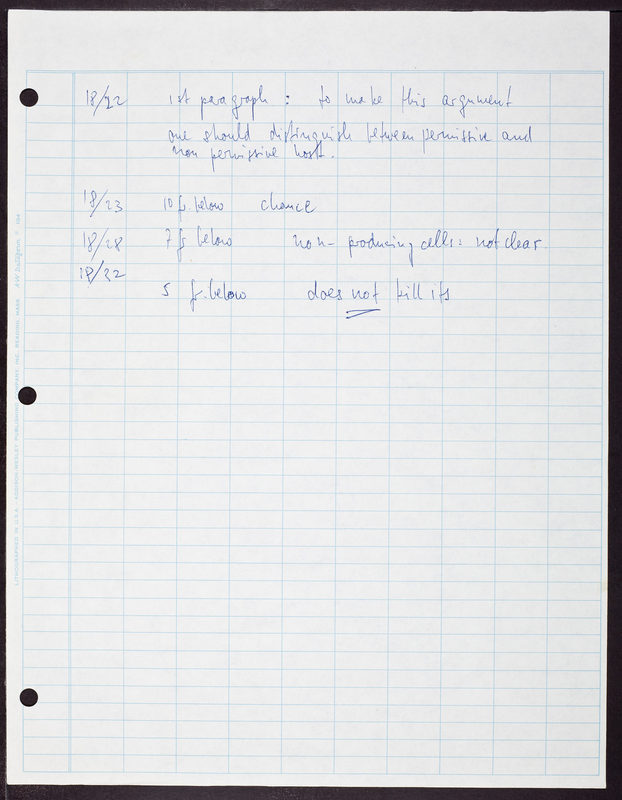 18/22 1st paragraph : to make this argument
one should distinguish between permissive and
non permissive host.
18/23 10 fr. below chance
18/28 7 fr below non-producing cells: not clear.
18/32
5 fr. below does not kill its
LITHOGRAPHED IN U.S.A. ADDISON-WESLEY PUBLISHING COMPANY, INC. READING, MASS.